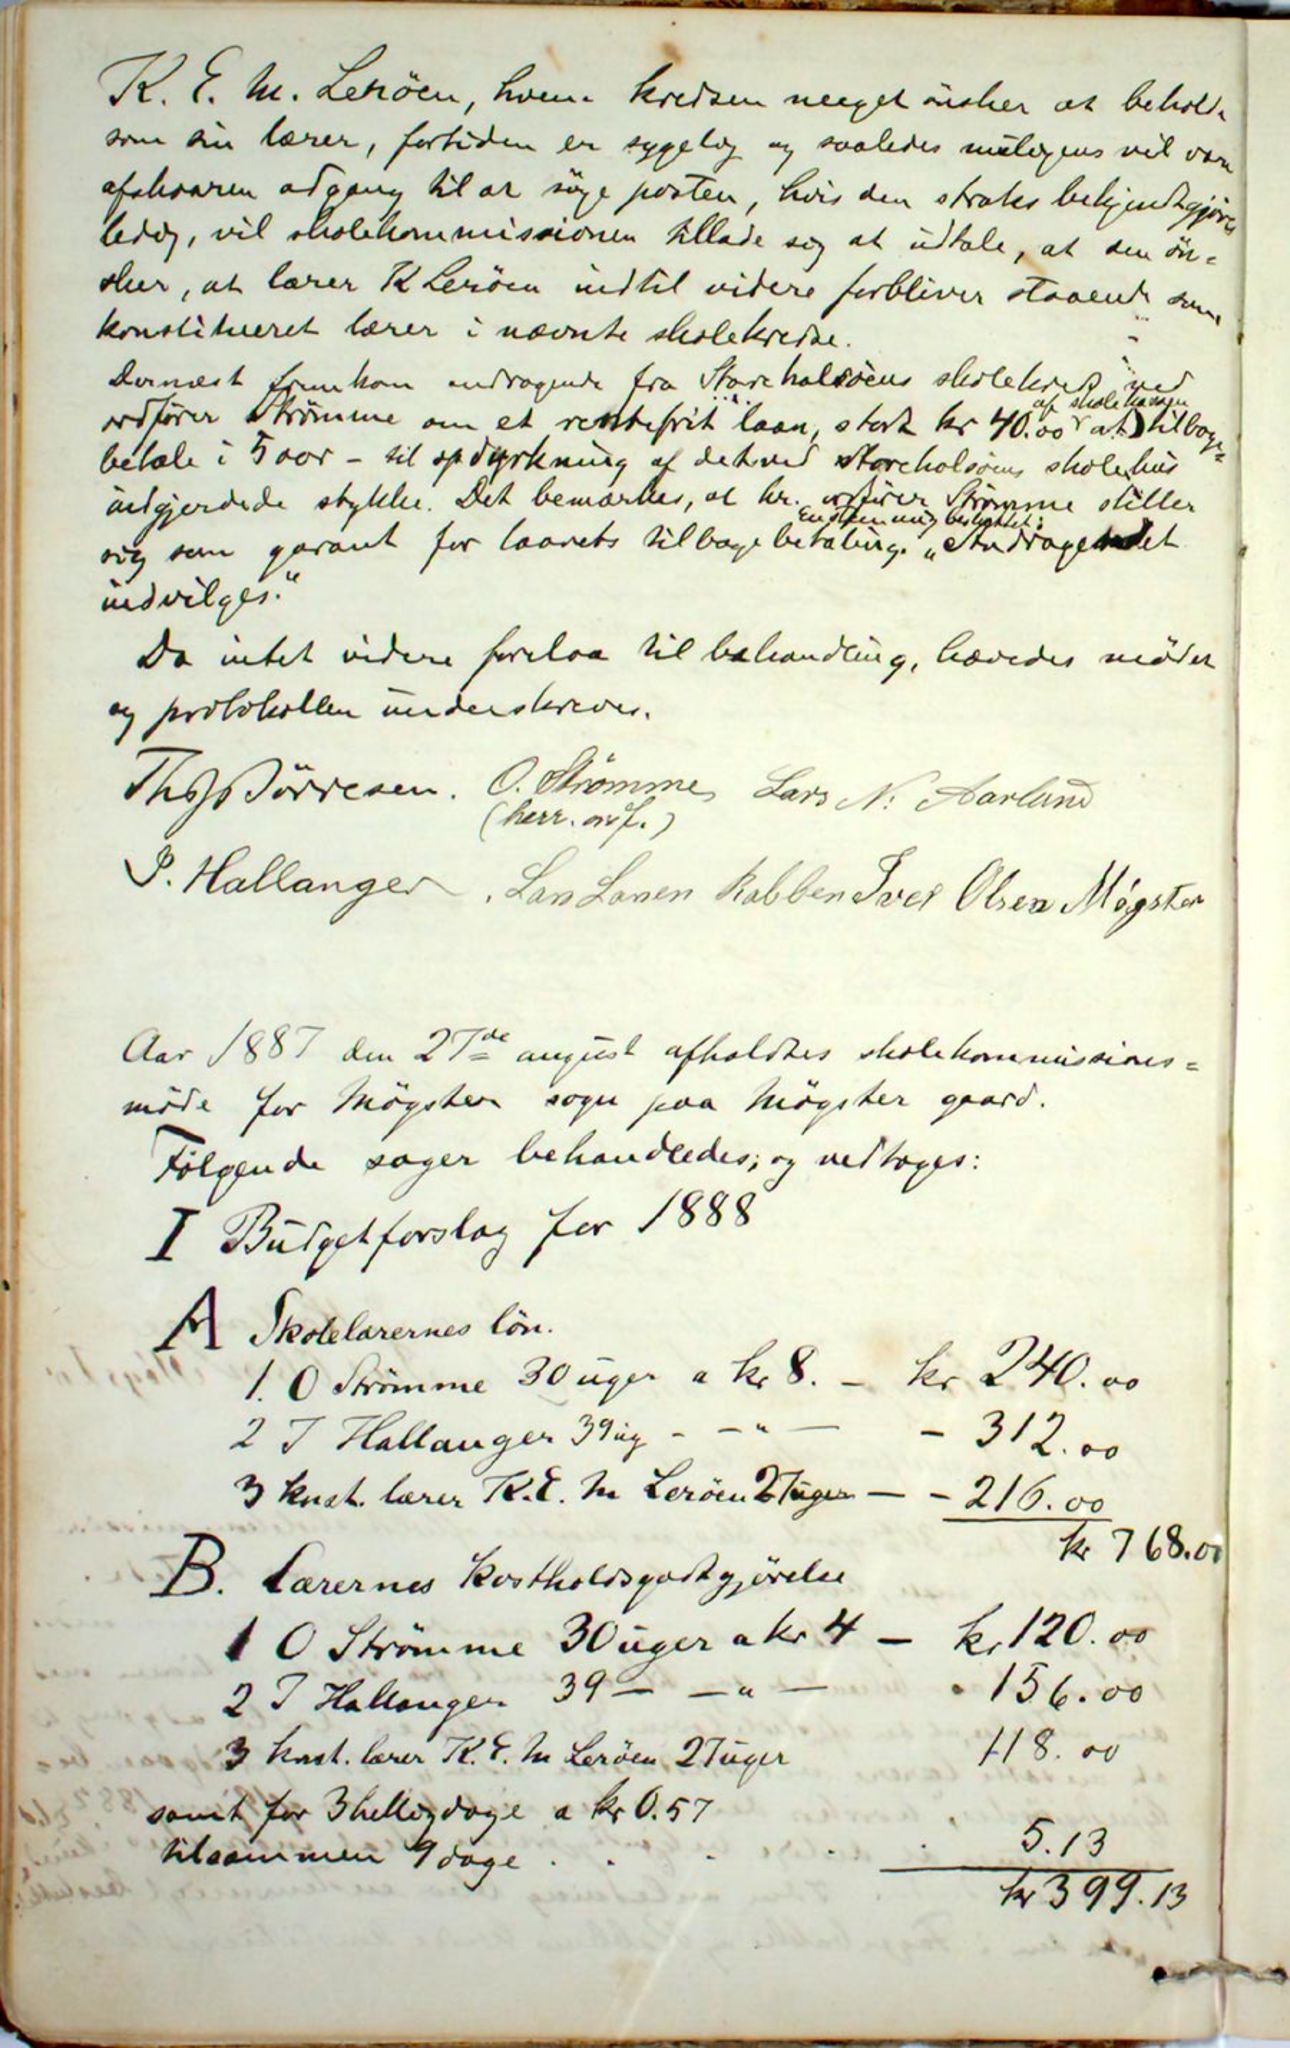 K. E. M. Leröen, hvem kredsen meeget önsker at beholde
som sin lærer, fortiden er sygelig og saaledes muligens vil være
afskaaren adgang til at söge posten, hvis den straks bekjendtgjöres
ledig, vil skolekommissionen tillade sig at udtale, at den ön=
sker, at lærer K Leröen indtil videre forbliver staaende som
konstitueret lærer i nævnte skolekreds.
Dernæst fremkom andragende fra Storekalsöens skolekreds ved
ordförer Strömme om et rentefrit laan, stort kr 40.00 af skolekassen at tilbage=
betale i 5 aar - til opdyrkning af det ved Storekalsöens skolehus
indgjerdede stykke. Det bemærkes, at hr. ordförer Strömme stiller
sig som garant for laanets tilbagebetaling. Enstemmig besluttet: „Andragendet
indvilges."
Da intet videre forelaa til behandling, hævedes mödet
og protokollen underskreves.
Ths Börresen. O. Strömme Lars N. Aarland
(herr. ordf.)
P. Hallanger, Lars Larsen Rabben Iver Olsen Møgster
Aar 1887 den 27de august afholdtes skolekommissions=
möde for Mögster sogn paa Mögster gaard.
Fölgende sager behandledes, og vedtoges:
I Budgetforslag for 1888
A Skolelærernes lön.
1. O Strömme 30 uger a kr 8. - kr 240.00
2 J Hallanger 39 ug - - " - - 312.00
3 knst. lærer K. E. M Leröen 27 uger - - 216.00
kr 768.00
B. Lærernes kostholdsgodtgjörelse
1 O Strömme 30 uger a kr 4 - kr 120.00
2 J Hallanger 39 - - " - 156.00
3 knst. lærer K. E. M Leröen 27 uger 118.00
samt for 3 helligdage a kr 0.57
tilsammen 9 dage . . . . . 5.13
kr 399.13